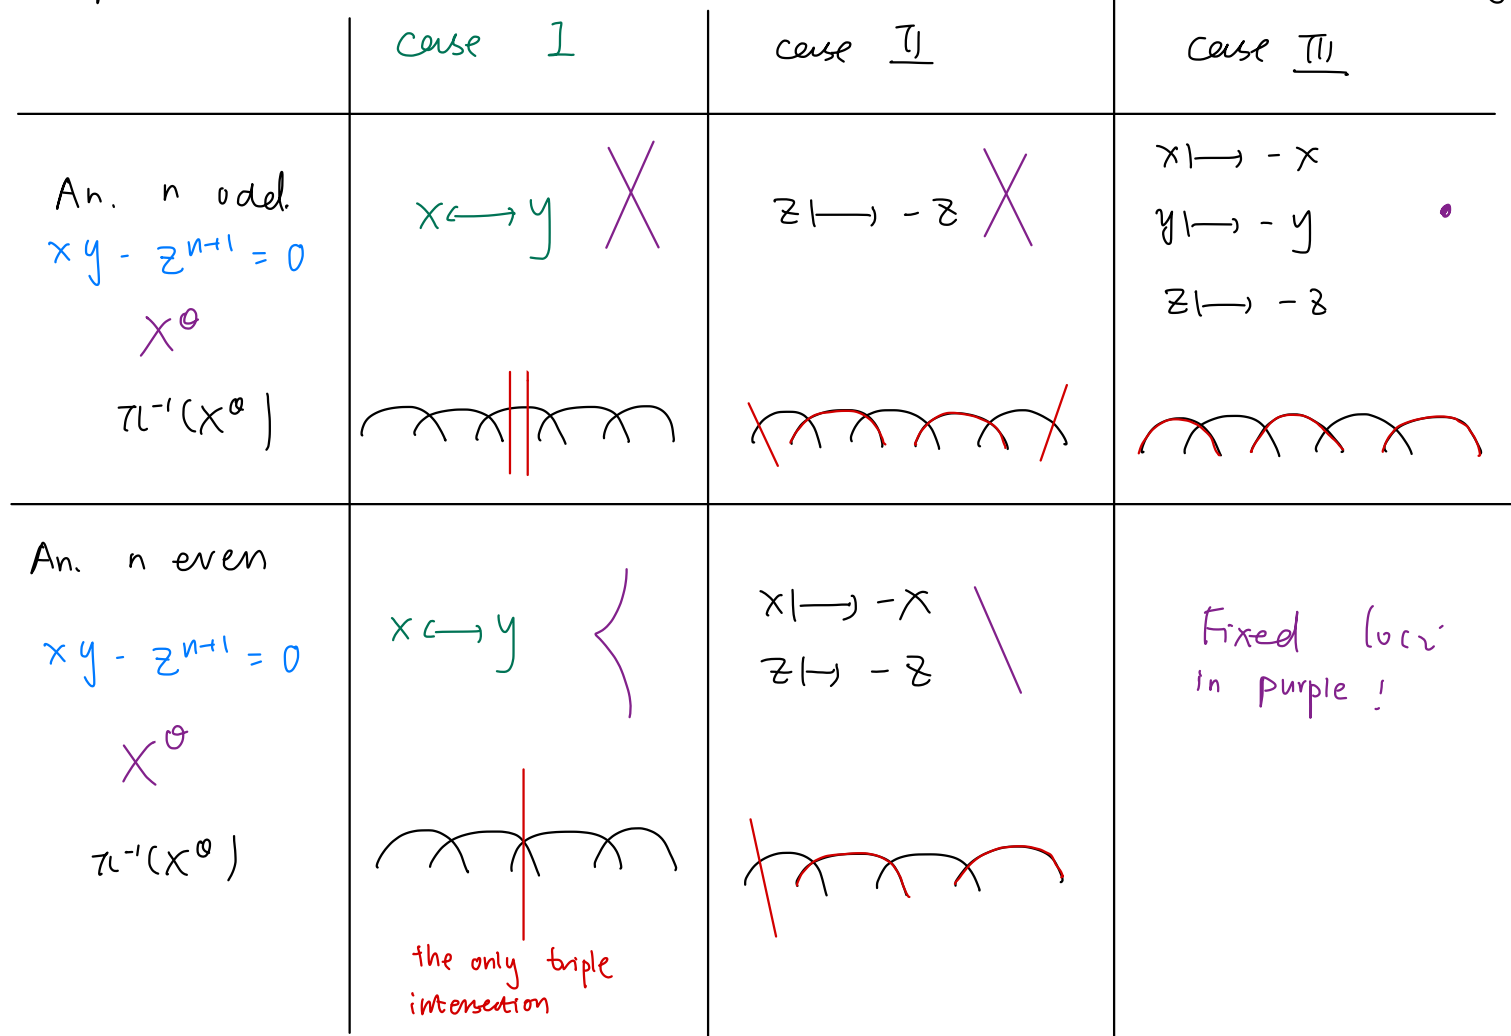 case I
case II
case III
An. n odd.
xy - z^{n+1} = 0
X^θ
π^{-1}(X^θ)
x ↔ y
z ↦ -z
x ↦ -x
y ↦ -y
z ↦ -z
An. n even
xy - z^{n+1} = 0
X^θ
π^{-1}(X^θ)
x ↔ y
the only triple
intersection
x ↦ -x
z ↦ -z
Fixed loci
in purple !